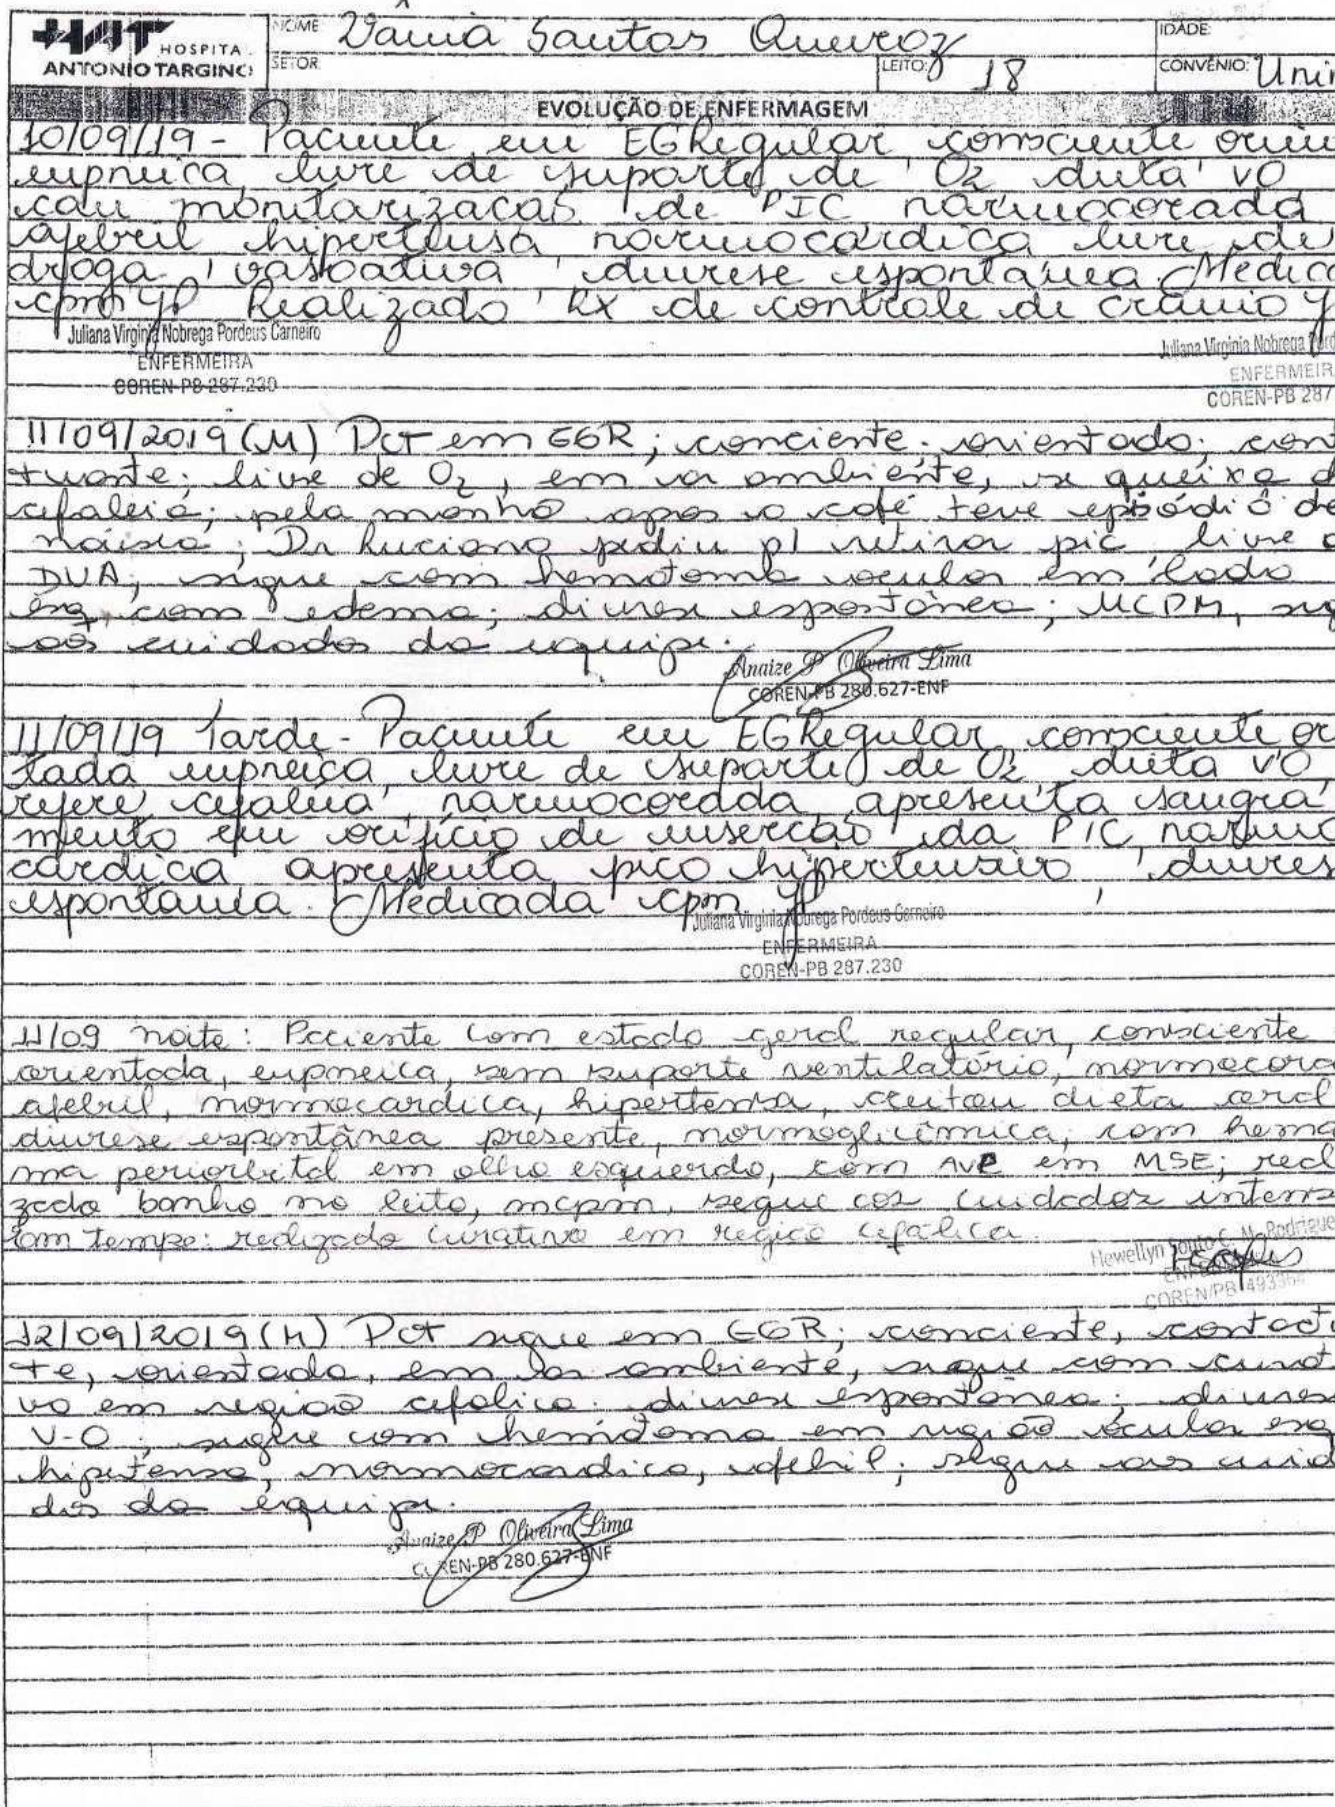 HAT HOSPITA
ANTONIO TARGINO
NOME Vânia Santos Queiroz
IDADE:
SETOR:
LEITO: 18
CONVÊNIO: Unim
EVOLUÇÃO DE ENFERMAGEM
10/09/19 - Paciente em EGRegular consciente orien
eupneica, livre de suporte de O2 dieta VO
com monitorização de PIC normocorada
afebril hipertensa normocárdica livre de
droga vasoativa, diurese espontânea. Medica
cpm Realizado RX de controle de crânio
Juliana Virginia Nobrega Pordeus Carneiro
ENFERMEIRA
COREN-PB 287.230
Juliana Virginia Nobrega Pord
ENFERMEIR
COREN-PB 287
11/09/2019 (M) Pct em EGR; conciente; orientado; cont
tuante; livre de O2, em ar ambiente, se queixa d
cefaleia; pela manhã apos o café teve episódio de
náusea; Dr Luciano pediu p/ retirar pic, livre d
DVA, segue com hematoma ocular em lado
esq com edema; diurese espontânea; MCPM, seg
aos cuidados da equipe.
Anaize P Oliveira Lima
COREN-PB 280.627-ENF
11/09/19 Tarde - Paciente em EGRegular, consciente or
tada eupneica, livre de suporte de O2 dieta VO,
refere cefaleia, normocorada, apresenta sangra
mento em orifício de inserção da PIC, normo
cárdica apresenta pico hipertensivo, diures
espontânea. Medicada cpm
Juliana Virginia Nobrega Pordeus Carneiro
ENFERMEIRA
COREN-PB 287.230
11/09 noite: Paciente com estado geral regular, consciente
orientada, eupneica, sem suporte ventilatório, normocora
afebril, normocardica, hipertensa, aceitou dieta oral
diurese espontânea presente, normoglicêmica, com hema
ma periorbital em olho esquerdo, com AVP em MSE; real
zado banho no leito, mcpm, segue aos cuidados intens
Em tempo: realizado curativo em região cefálica.
Hewellyn Souto C. M. Rodrigue
COREN/PB 4933
12/09/2019 (M) Pct segue em EGR; conciente, contactu
te, orientada, em ar ambiente, segue com curat
vo em região cefalica. diurese espontânea; diurese
V-O; segue com hematoma em região ócular esq
hipetensa, normocardica, afebril; segue aos cuid
dos da equipe.
Anaize P Oliveira Lima
COREN-PB 280.627-ENF